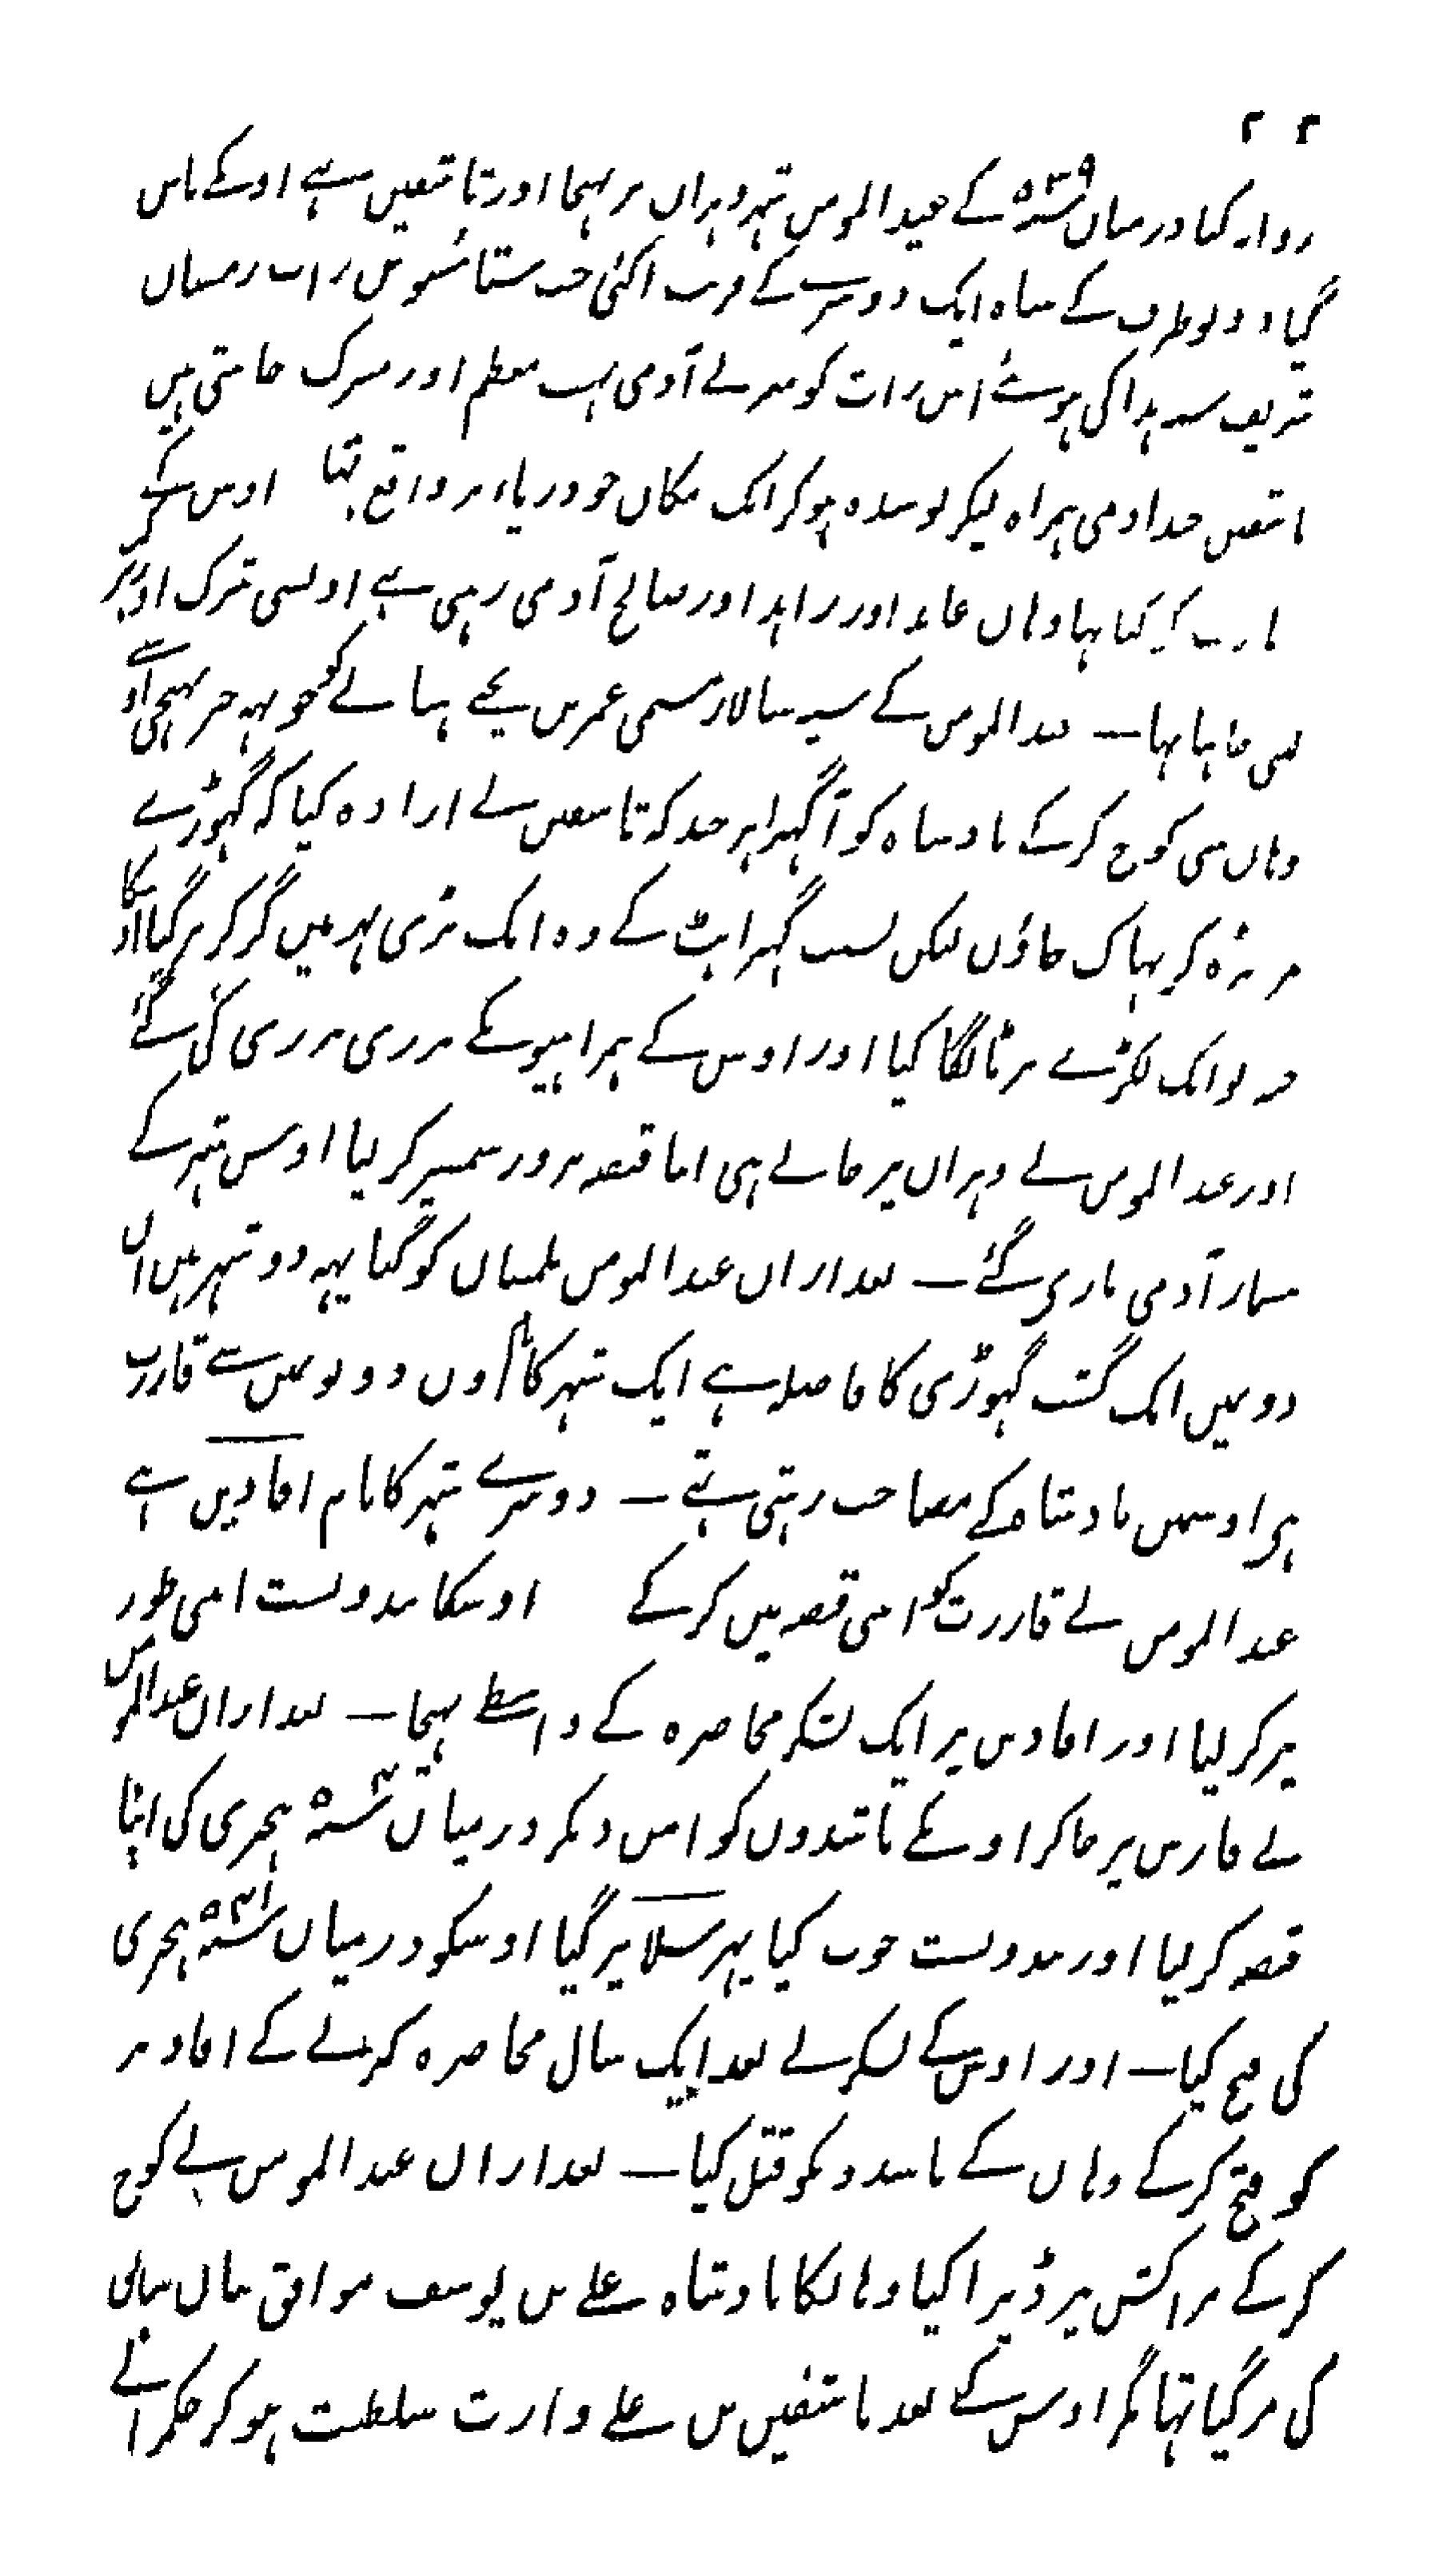 ۲۲
روانہ کیا درمیان سنہ ۵۳۹ کے عبدالمومن شہر وہران پر پہنچا اور تاشفین بہی اوسکے پاس
گیا دونو طرف کے سپاہ ایک دوسرے کے قریب آگئی جب ستائیسویں رات رمضان
شریف سنہ ہذا کی ہوئے اس رات کو مغربے آدمی بہت معظم اور متبرک جانتی ہیں
تاشفین چند آدمی ہمراہ لیکر پوشیدہ ہوکر ایک مکان جو دریاء پر واقع تہا اوس کے
زیارت کرنے گیا تہا وہاں عابد اور زاہد اور صالح آدمی رہتی تہے اوسی تبرک
لینی چاہا تہا ــ عبدالمومن کے سپہ سالار مسمی عمر بن یحیے ہنتانے کو جو یہہ خبر پہنچی
وہاں سی کوچ کرکے بادشاہ کو آگہیرا ہر چند کہ تاشفین نے ارادہ کیا کہ گہوڑے
پر چڑہ کر بہاگ جاؤں لیکن بسبب گہبراہٹ کے وہ ایک بڑی نہر میں گرکر مرگیا
جثہ تو ایک لکڑے پر ٹانگا گیا اور اوس کے ہمراہیونکے پرزی پرزی کئی گئے
اور عبدالمومن نے وہران پر جاتے ہی اپنا قبضہ بزور شمشیر کرلیا اوس شہر کے
بیشمار آدمی ماری گئے ــ بعد ازاں عبدالمومن تلمسان کو گیا یہہ دو شہر ہیں ان
دو میں ایک گشت گہوڑی کا فاصلہ ہے ایک شہر کا نام اون دونو میں سے قاررت
ہی اوسمیں بادشاہ کے مصاحب رہتی تہے ــ دوسرے شہر کا نام اقادیں ہے
عبدالمومن نے قاررت کو اپنی قبضہ میں کرکے اوسکا بندوبست اپنی طور
پر کرلیا اور اقادیں پر ایک لشکر محاصرہ کے واسطے بہیجا ــ بعد ازاں عبدالمومن
نے فارس پر جاکر اوسکے باشندوں کو امن دیکر درمیان سنہ ۵۴۰ ہجری کی اپنا
قبضہ کرلیا اور بندوبست خوب کیا پہر سلا پر گیا اوسکو درمیان سنہ ۵۴۱ ہجری
کی فتح کیا ــ اور اوس کے لشکر نے بعد ایک سال محاصرہ کرنے کے اقادیر
کو فتح کرکے وہاں کے باشندونکو قتل کیا ــ بعد ازاں عبدالمومن نے کوچ
کرکے مراکش پر ڈیرا کیا وہانکا بادشاہ علے بن یوسف موافق سال
کی مرگیا تہا مگر اوس کے بعد تاشفین بن علے وارث سلطنت ہوکر حکمرانے